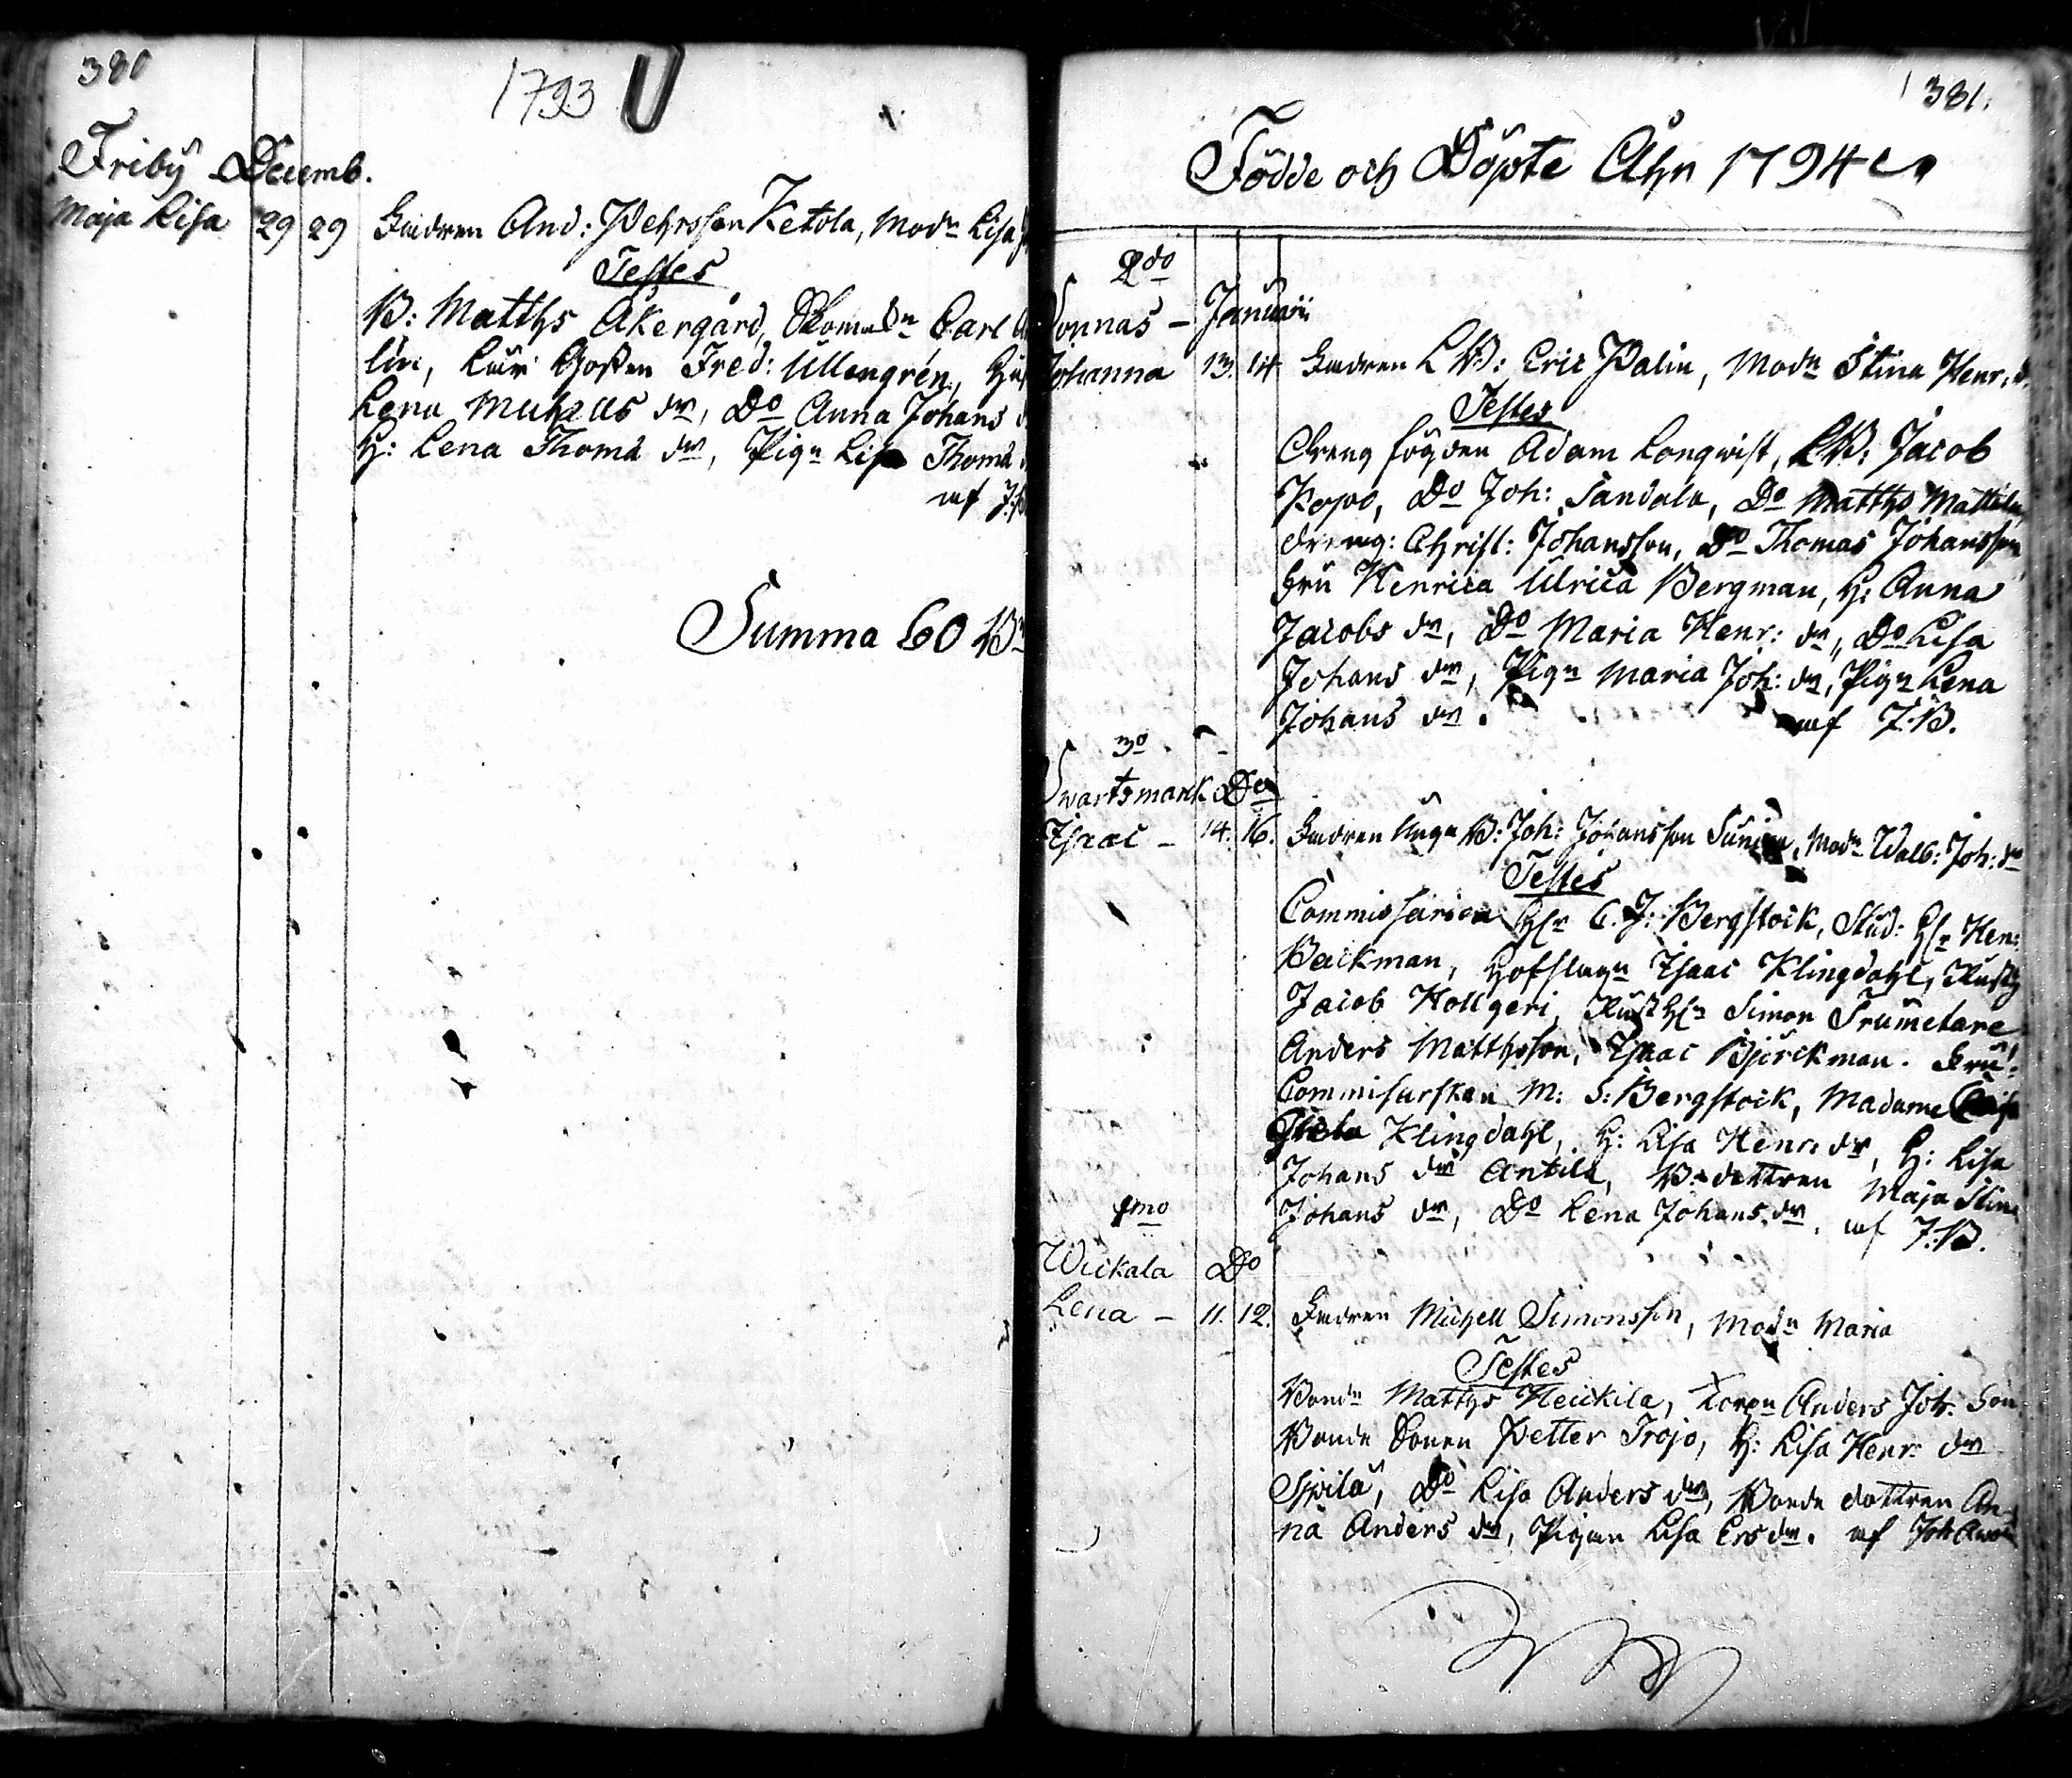 380
1793
Friby Decemb.
Maja Lisa 29 29 Fadren And: Pehrsson Ketola, Modn Lisa
Testes
B: Matths Åkergård, Skomakn Carl
lin, Lär Gossen Fred: Ullengrén,
Lena Michells dr, Do Anna Johans
H: Lena Thoma dr, Pign Lisa Thoma
af
Summa 60 Bn
381.
Födde och Döpte Åhr 1794
2do
Vonnas – Januarii
Johanna 13. 14 Fadren LB: Eric Palin, Modn Stina Henr: d.
Testes
Dreng fogden Adam Lonqwist, LB: Jacob
Popo, Do Joh: Sandala, Do Matths Mattila
dreng: Christ: Johansson, Do Thomas Johansson
Fru Henrica Ulrica Bergman, H: Anna
Jacobs dr, Do Maria Henr: dr, Do Lisa
Johans dr, Pign Maria Joh: dr, Pign Lena
Johans dr. af J:B.
3o
Swartsmark Do
Isaac – 14. 16. Fadren Unga B: Joh: Johansson, Modn Walb: Joh: dr
Testes
Commissarien Hr C. J: Bergstock, Stud: Hr Hen:
Backman, Hofslagn Isaac Klingdahl, Rusth
Jacob Hollgeri, Rusthn Simon Trumetare
Anders Matthsson, Isaac Björckman. Fru:
Commissarskan M: S: Bergstock, Madame
Klingdahl, H: Lisa Henr: dr, H: Lisa
Johans dr Antila, B: dottren Maja Stina
Johans dr, Do Lena Johans dr. af J:B.
1mo
Wickala Do
Lena – 11. 12. Fadren Michell Simonsson, Modn Maria
Testes
Bondn Matths Heickila, Torpn Anders Joh: Son
Bonde Sonen Petter Tröjo, H: Lisa Henr: dr
Spila, Do Lisa Anders dr, Bonde dottren An
na Anders dr, Pigan Lisa Ers dr. af Joh: